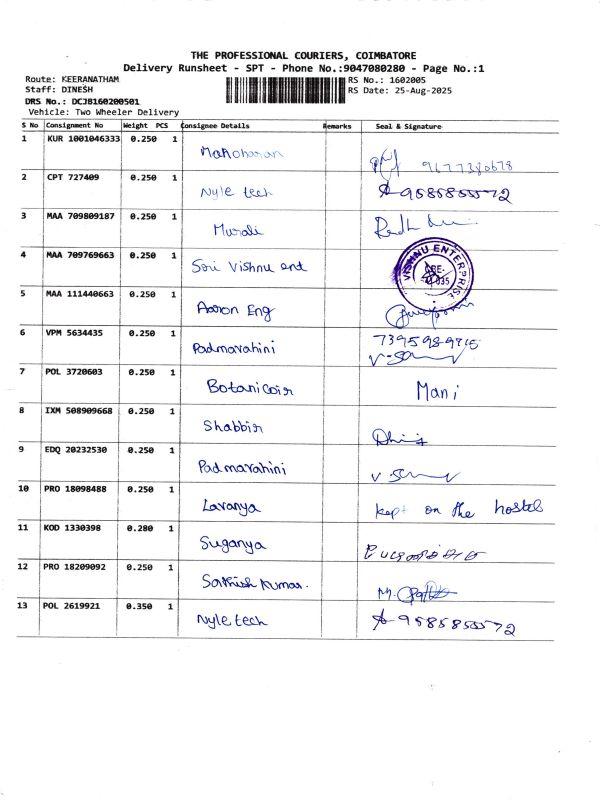 THE PROFESSIONAL COURIERS, COIMBATORE
Delivery Runsheet - SPT - Phone No.:9047080280 - Page No.:1
Route: KEERANATHAM RS No.: 1602005
Staff: DINESH RS Date: 25-Aug-2025
DRS No.: DCJB160200501
Vehicle: Two Wheeler Delivery
S No Consignment No Weight PCS Consignee Details Remarks Seal & Signature
1 KUR 1001046333 0.250 1 Manoharan 9677380678
2 CPT 727409 0.250 1 Nyle tech 9585855572
3 MAA 709809187 0.250 1 Murali
4 MAA 709769663 0.250 1 Sri Vishnu ent VISHNU ENTERPRISE
5 MAA 111440663 0.250 1 Aaron Eng
6 VPM 5634435 0.250 1 Padmavahini
7 POL 3720603 0.250 1 Botanicoir Mani
8 IXM 508909668 0.250 1 Shabbir
9 EDQ 20232530 0.250 1 Padmavahini
10 PRO 18098488 0.250 1 Lavanya kept on the hostel
11 KOD 1330398 0.280 1 Suganya
12 PRO 18209092 0.250 1 Sathish Kumar.
13 POL 2619921 0.350 1 Nyle tech 9585855572